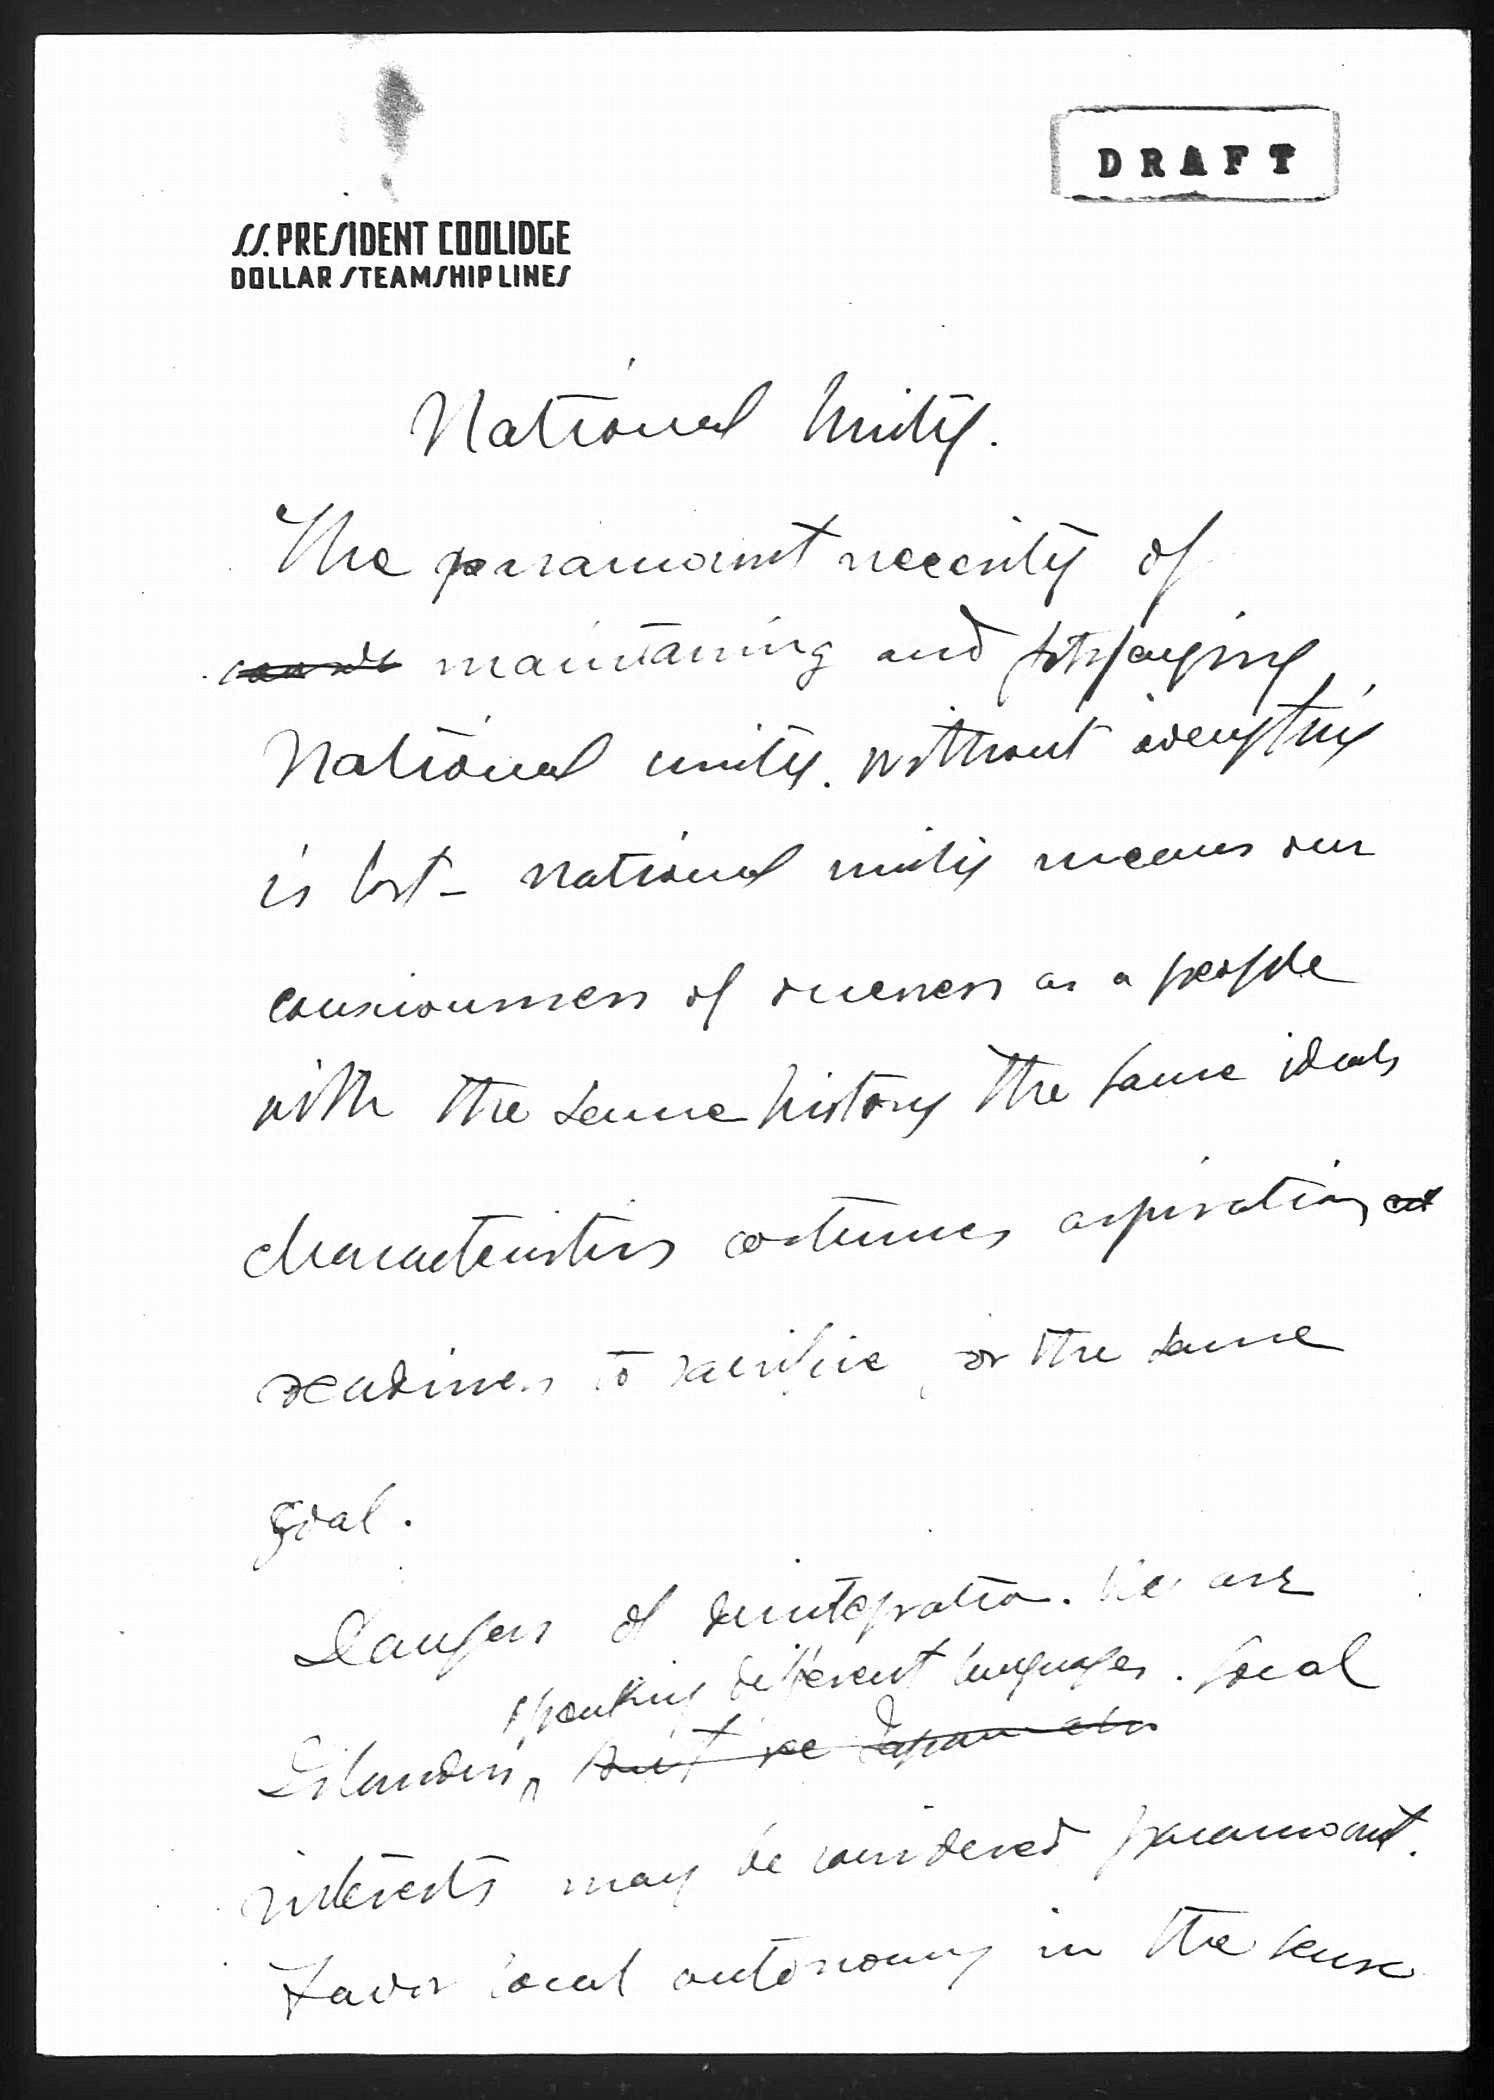 DRAFT
S.S. PRESIDENT COOLIDGE
DOLLAR STEAMSHIP LINES
National Unity.
The paramount necesity of
maintaining and
National unity. Without everything
is lost - National unity means our
consciousness of oneness as a people
with the same history the same ideals
characteristics costumes aspirations and
readiness to sacrifice for the same
goal.
Dangers of disintegration. We are
speaking different languages. Local
Islanders, but we Japan
interests may be considered paramount.
Favor local autonomy in the sense